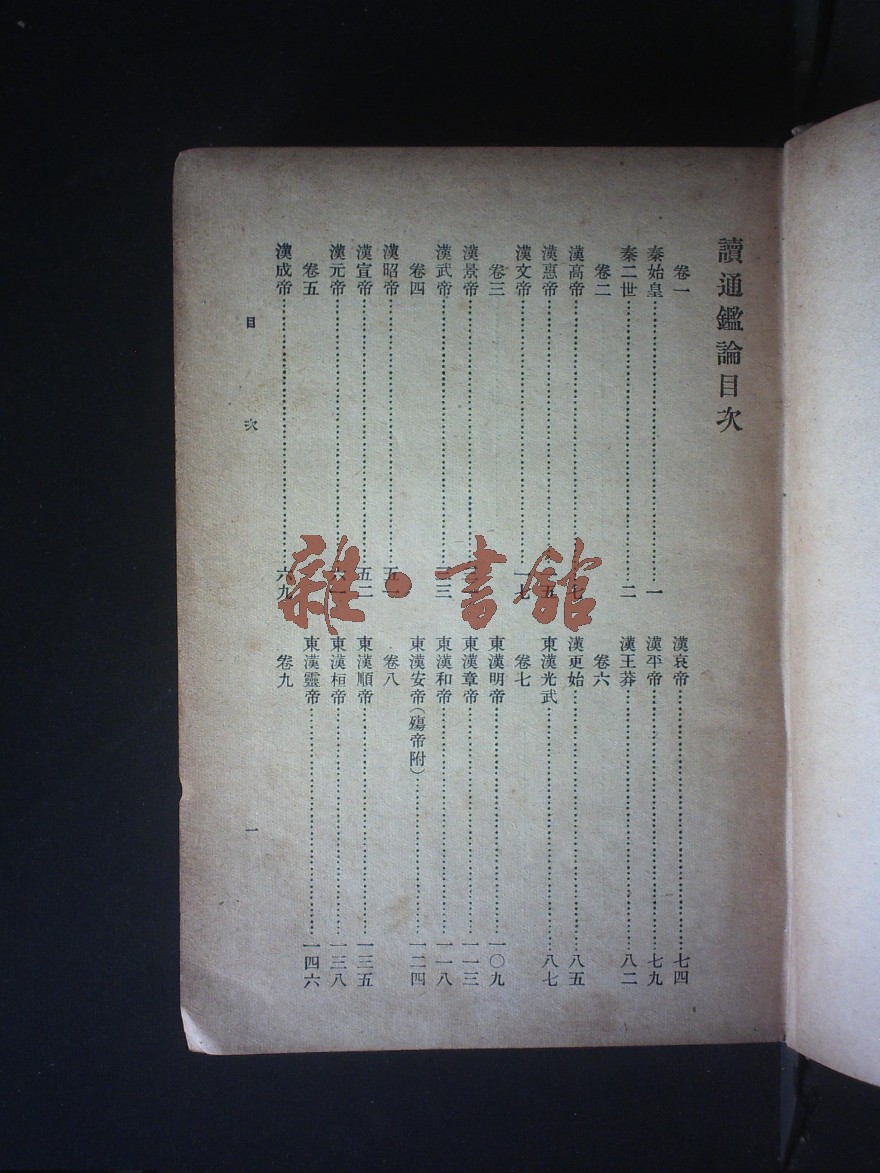 讀通鑑論目次
卷一
秦始皇……一
秦二世……二
卷二
漢高帝……七
漢惠帝……
漢文帝……一七
卷三
漢景帝……
漢武帝……
卷四
漢昭帝……五一
漢宣帝……五二
漢元帝……六一
卷五
漢成帝……六九
漢哀帝……七四
漢平帝……七九
漢王莽……八二
卷六
漢更始……八五
東漢光武……八七
卷七
東漢明帝……一〇九
東漢章帝……一一三
東漢和帝……一一八
東漢安帝(殤帝附)……一二四
卷八
東漢順帝……一三五
東漢桓帝……一三八
東漢靈帝……一四六
卷九
目次 一
雜·書館